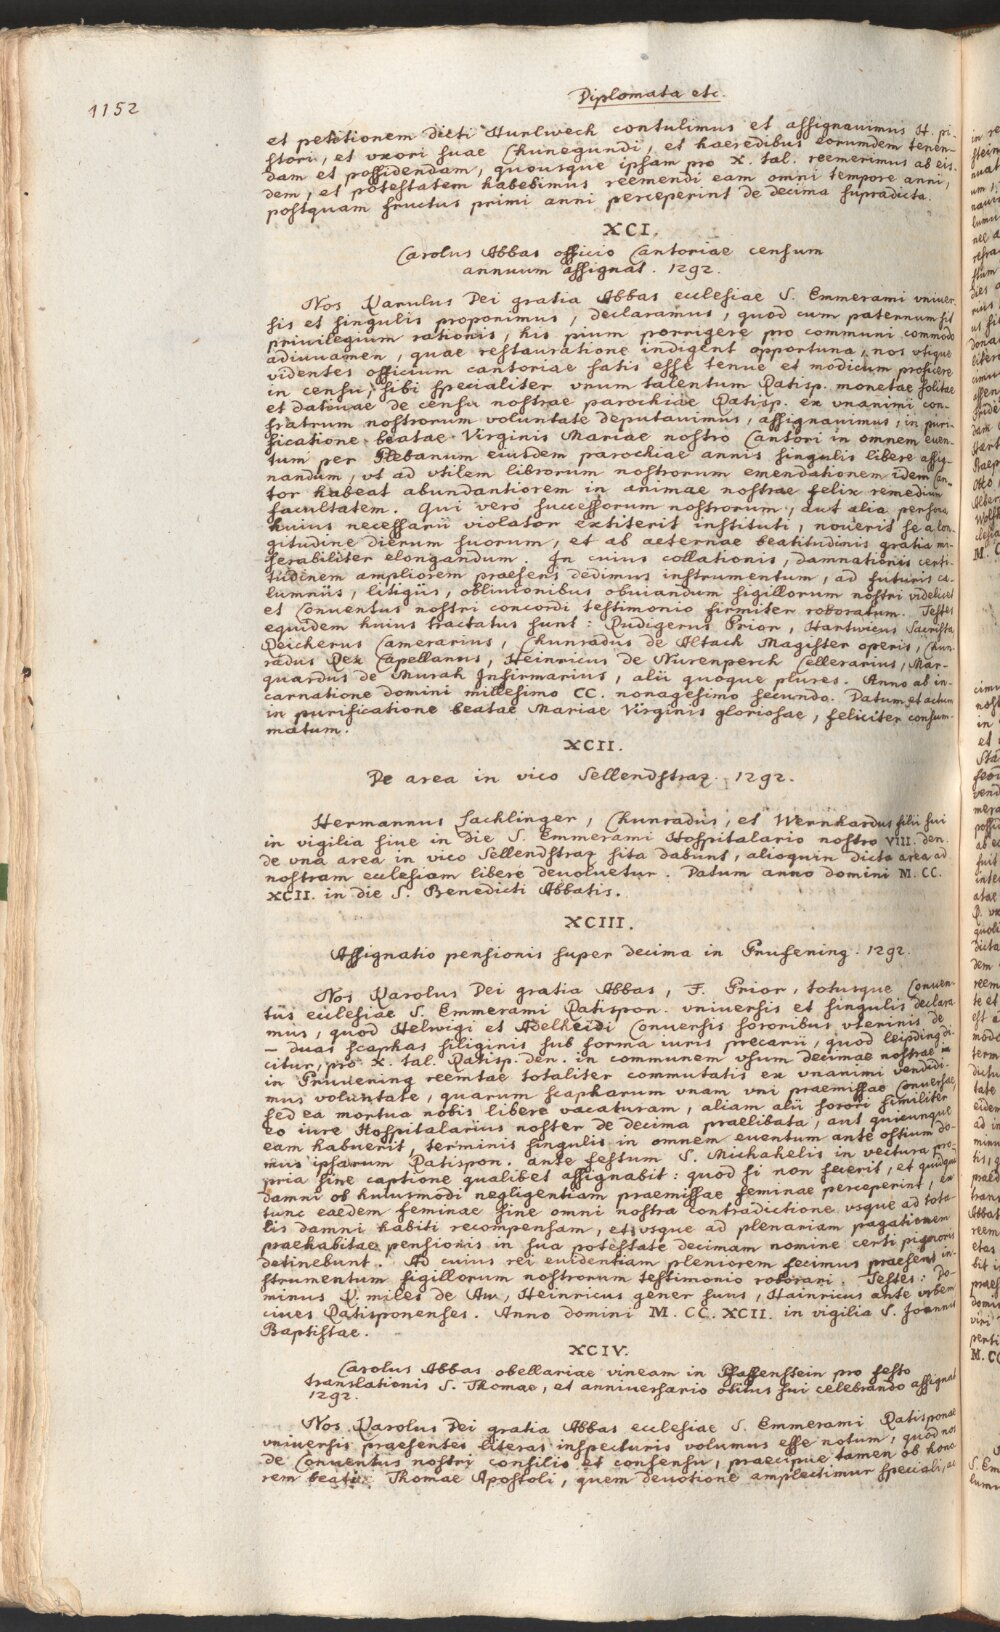 1152
Diplomata etc.
et petitionem dicti Hurlweck contulimus et assignauimus H. pi-
stori, et vxori suae Chunegundi, et haeredibus eorumdem tenen-
dam et possidendam, quousque ipsam pro X. tal. reemerimus ab eis-
dem, et potestatem habebimus reemendi eam omni tempore anni,
postquam fructus primi anni perceperint de decima supradicta.
XCI.
Carolus Abbas officio Cantoriae censum
annuum assignat. 1292.
Nos Karulus Dei gratia Abbas ecclesiae S. Emmerami vniuer-
sis et singulis proponimus, declaramus, quod cum paternum sit
priuilegium rationis, his pium porrigere pro communi commodo
adiuuamen, quae restauratione indigent opportuna, nos vtique
videntes officium cantoriae satis esse tenue et modicum proficere
in censu, sibi specialiter vnum talentum Ratisp. monetae solitae
et datiuae de censu nostrae parochiae Ratisp. ex vnanimi con-
fratrum nostrorum voluntate deputauimus, assignauimus, in puri-
ficatione beatae Virginis Mariae nostro Cantori in omnem euen-
tum per Plebanum eiusdem parochiae annis singulis libere assig-
nandum, vt ad vtilem librorum nostrorum emendationem idem Can-
tor habeat abundantiorem in animae nostrae felix remedium
facultatem. Qui vero successorum nostrorum, aut alia persona
huius necessarii violator extiterit instituti, nouerit se a lon-
gitudine dierum suorum, et ab aeternae beatitudinis gratia mi-
serabiliter elongandum. In cuius collationis, damnationis certi-
tudinem ampliorem praesens dedimus instrumentum, ad futuris ca-
lumniis, litigiis, obliuionibus obuiandum sigillorum nostri videlicet
et Conuentus nostri concordi testimonio firmiter roboratum. Testes
equidem huius tractatus sunt: Rudigerus Prior, Hartwicus Sacrista
Reicherus Camerarius, Chunradus de Altach Magister operis, Chun-
radus Rex Capellanus, Heinricus de Nurenperch Cellerarius, Mar-
quardus de Murah Infirmarius, alii quoque plures. Anno ab in-
carnatione domini millesimo CC. nonagesimo secundo. Datum et actum
in purificatione beatae Mariae Virginis gloriosae, feliciter consum-
matum.
XCII.
De area in vico Sellendstraz. 1292.
Hermannus Lacklinger, Chunradus, et Wernhardus filii sui
in vigilia siue in die S. Emmerami Hospitalario nostro VIII. den.
de vna area in vico Sellendstraz sita dabunt, alioquin dicta area ad
nostram ecclesiam libere deuoluetur. Datum anno domini M. CC.
XCII. in die S. Benedicti Abbatis.
XCIII.
Assignatio pensionis super decima in Prufening. 1292.
Nos Karolus Dei gratia Abbas, F. Prior, totusque Conuen-
tus ecclesiae S. Emmerami Ratispon. vniuersis et singulis declara-
mus, quod Helwigi et Adelheidi Conuersis sororibus vterinis de
— duas scaphas siliginis sub forma iuris precarii, quod leipding di-
citur, pro X. tal. Ratisp. den. in communem vsum decimae nostrae
in Pruuening reemtae totaliter commutatis ex vnanimi vendidi-
mus voluntate, quarum scapharum vnam vni praemissae Conuersae,
sed ea mortua nobis libere vacaturam, aliam alii sorori similiter
eo iure Hospitalarius noster de decima praelibata, aut quicunque
eam habuerit, terminis singulis in omnem euentum ante ostium do-
mus ipsarum Ratispon. ante festum S. Michahelis in vectura pro-
pria sine captione qualibet assignabit: quod si non fecerit, et quidquid
damni ob huiusmodi negligentiam praemissae feminae perceperint, ex
tunc eaedem feminae sine omni nostra contradictione vsque ad tota-
lis damni habiti recompensam, et vsque ad plenariam pagationem
praehabitae pensionis in sua potestate decimam nomine certi pignoris
detinebunt. Ad cuius rei euidentiam pleniorem fecimus praesens in-
strumentum sigillorum nostrorum testimonio roborari. Testes: Do-
minus R. miles de Aw, Heinricus gener suus, Hainricus ante vrbem
ciues Ratisponenses. Anno domini M. CC. XCII. in vigilia S. Joannis
Baptistae.
XCIV.
Carolus Abbas obellariae vineam in Pfaffenstein pro festo
translationis S. Thomae, et anniuersario obitus sui celebrando assignat
1292.
Nos Karolus Dei gratia Abbas ecclesiae S. Emmerami Ratisponae
vniuersis praesentes literas inspecturis volumus esse notum, quod nos
de Conuentus nostri consilio et consensu, praecipue tamen ob hono-
rem beati Thomae Apostoli, quem deuotione amplectimur speciali, ac